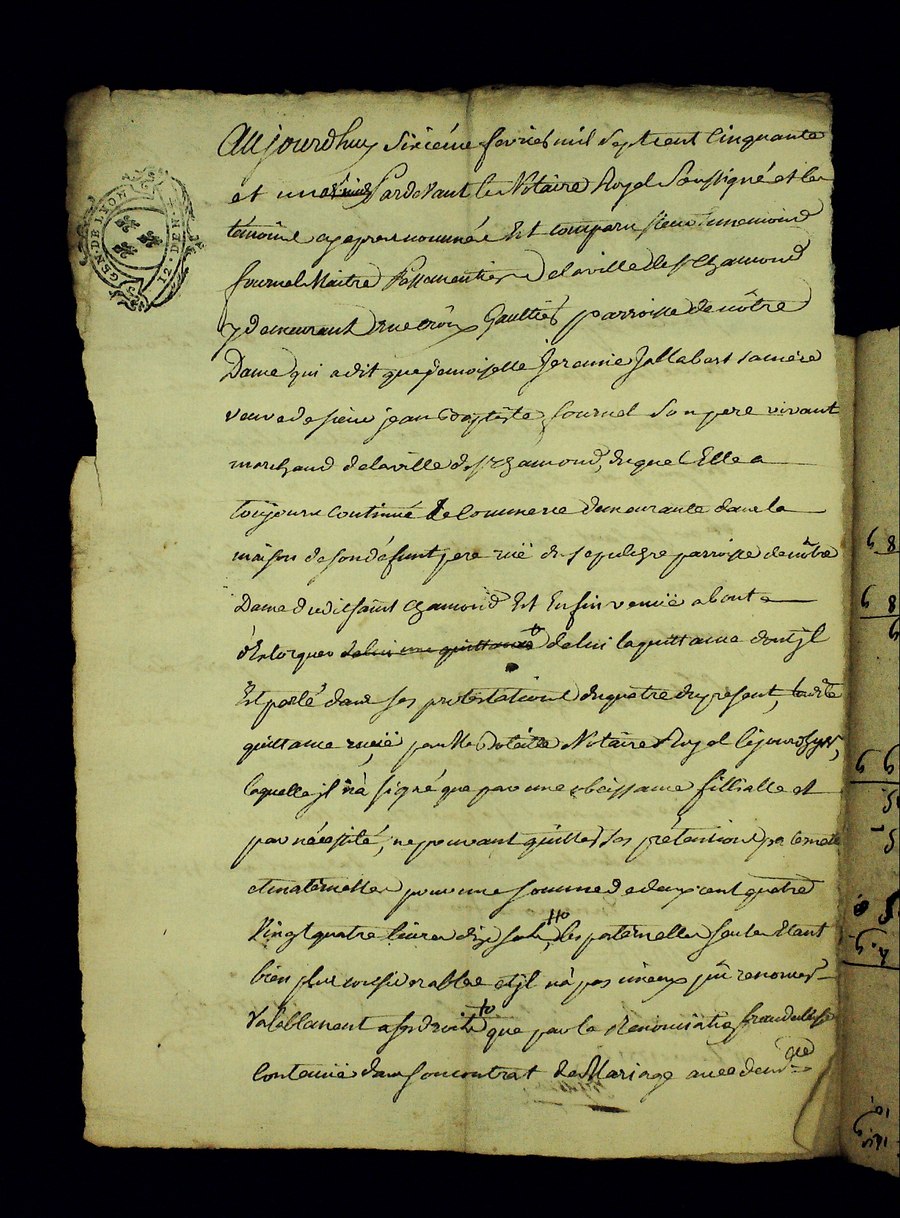 GEN. DE LYON
12. DEN.
Aujourdhuy sixiéme fevrier mil sept cent Cinquante
et un Pardevant le Notaire Royal Soussigné et les
témoins cy apres nommés Est comparu sieur
fournel Maitre Passementier de la ville de st Chamond
y demeurant rue Gaultier parroisse de nôtre
Dame qui a dit que demoiselle Jeranie Jallabert sa mére
veuve de sieur jean Baptiste fournel son pere vivant
marchand de la ville de st Chamond, duquel Elle a
toujours continué le Commerce demeurante dans la
maison de son défunt pere ruë du sepulchre parroisse de nôtre
Dame dudit saint Chamond Est Enfin venuë a bout
d'Extorquer de lui une quittance de lui la quittance dont jl
Est parlé dans ses protestations du quatre du present,
quittance reçuë par Me Notaire Royal le jourdhyer,
laquelle jl n'à signé que par une obeissance fillialle et
par nécessité, ne pouvant quitter ses prétentions paternelles
et maternelles pour une somme de deux cent quatre
Vingt quatre livres dix sols, les paternelles seules Etant
bien plus considerables et jl n'à pas mieux pû renoncer
Valablement a ses droits que par la Renonciation frauduleuse
Contenuë dans son contrat de Mariage avec dem.lle